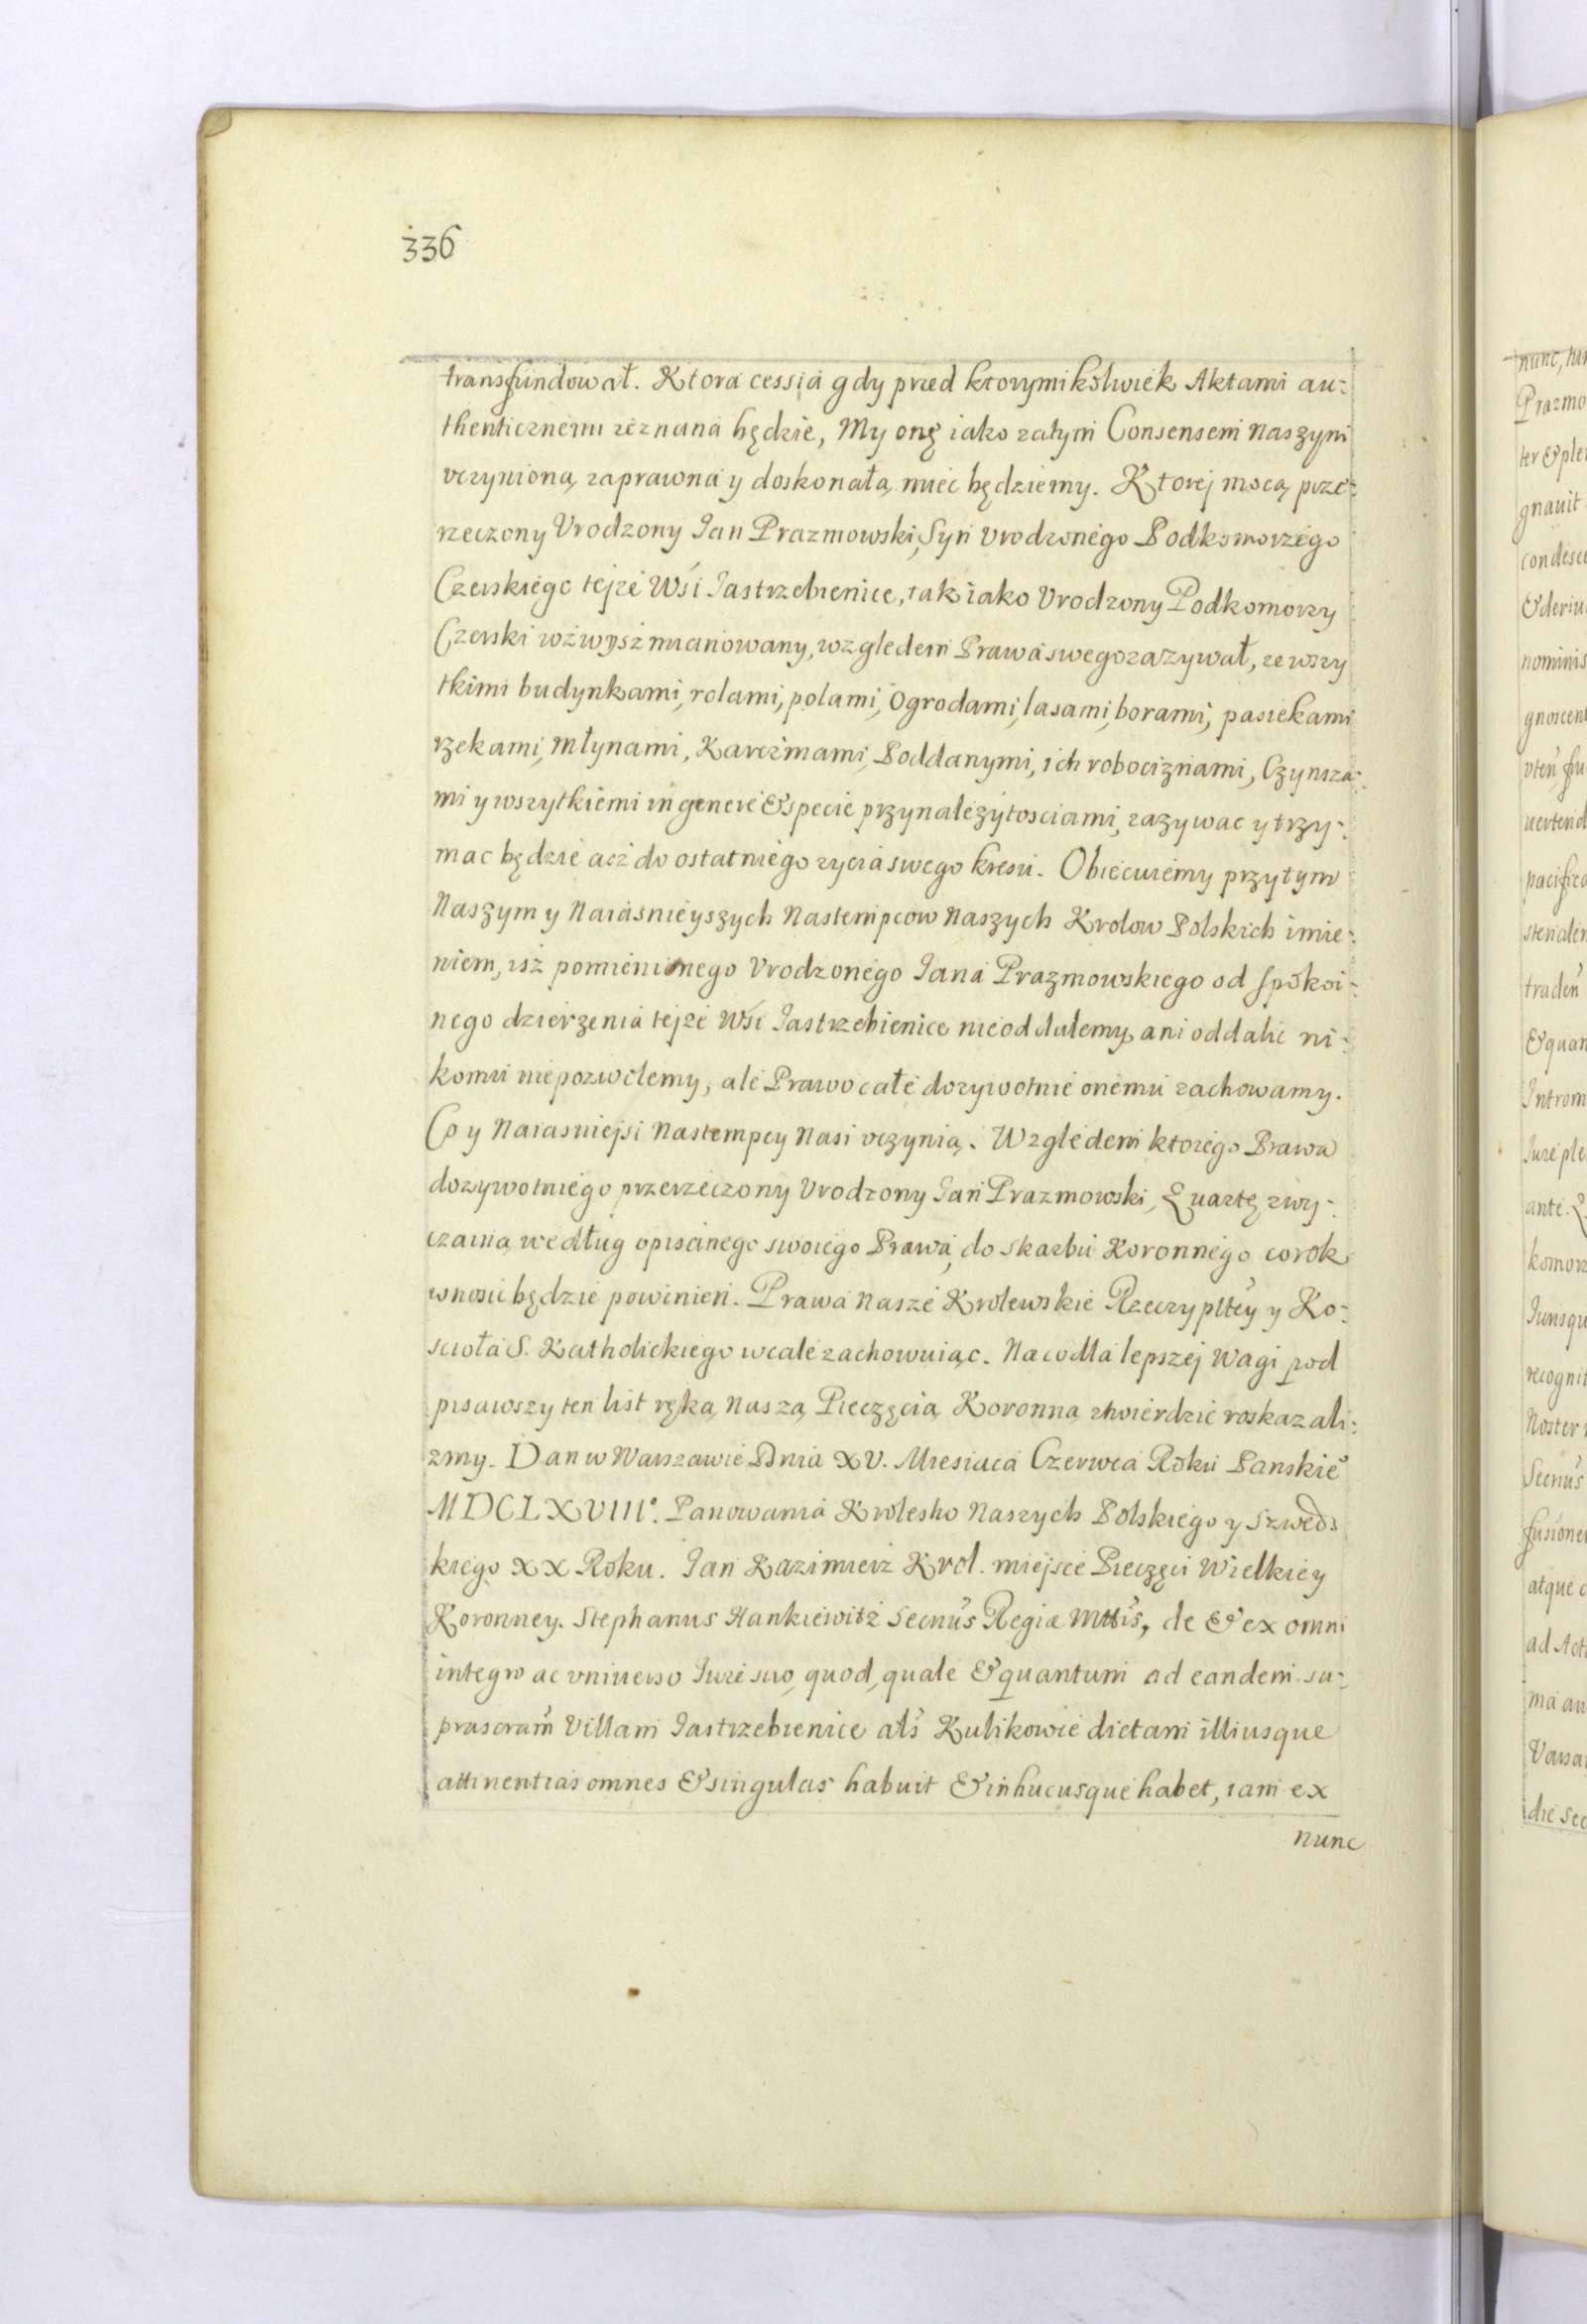 336
transfundował. Ktora cessia gdy przed ktorymikolwiek Aktami au-
thenticznemi zeznana będzie, My onę iako zatym Consensem Naszym
vczynioną, zaprawną y doskonałą, mieć będziemy. Ktorej mocą, prze-
rzeczony Vrodzony Jan Prazmowski, Syn Vrodzonego Podkomorzego
Czerskiego tejze Wsi Jastrzebienice, tak iako Vrodzony Podkomorzy
Czerski wzwysz mianowany, wzgledem Prawa swego zazywał, ze wszy
tkimi budynkami, rolami, polami, Ogrodami, lasami, borami, pasiekami
rzekami, Młynami, Karczmami, Poddanymi, ich robociznami, Czynsza-
mi y wszytkiemi in genere & specie przynalezytosciami, zazywac y trzy-
mac będzie acz do ostatniego zycia swego kresu. Obiecuiemy przytym
Naszym y Naiasnieyszych Nastempcow Naszych Krolow Polskich imie-
niem, isz pomienionego Vrodzonego Jana Prazmowskiego od spokoi-
nego dzierzenia tejze Wsi Jastrzebienice nieoddalemy, ani oddalic ni-
komu niepozwolemy, ale Prawo całe dozywotnie onemu zachowamy.
Co y Naiasniejsi Nastempcy Nasi vczynią. Wzgledem ktorego Prawa
dozywotniego przerzeczony Vrodzony Jan Prazmowski, Quartę zwy-
czainą według opisanego swoiego Prawa, do skarbu Koronnego corok
wnosic będzie powinien. Prawa Nasze Krolewskie Rzeczypltey y Ko-
scioła S. Katholickiego wcale zachowuiąc. Na co dla lepszej Wagi pod
pisawszy ten list ręką Naszą Pieczęcią Koronną ztwierdzic roskazali-
zmy. Dan w Warszawie Dnia XV. Miesiaca Czerwca Roku Panskie͠
MDCLXVIII°. Panowania Krolestw Naszych Polskiego y Szweds
kiego XX Roku. Jan Kazimierz Krol. miejsce Pieczęci Wielkiey
Koronney. Stephanus Hankiewitz Secnus Regiæ Mttis, de & ex omni
integro ac vniuerso Jure suo, quod, quale & quantum ad eandem su-
prascram Villam Jastrzebienice als Kulikowie dictam illiusque
attinentias omnes & singulas habuit & in hucusque habet, iam ex
nunc